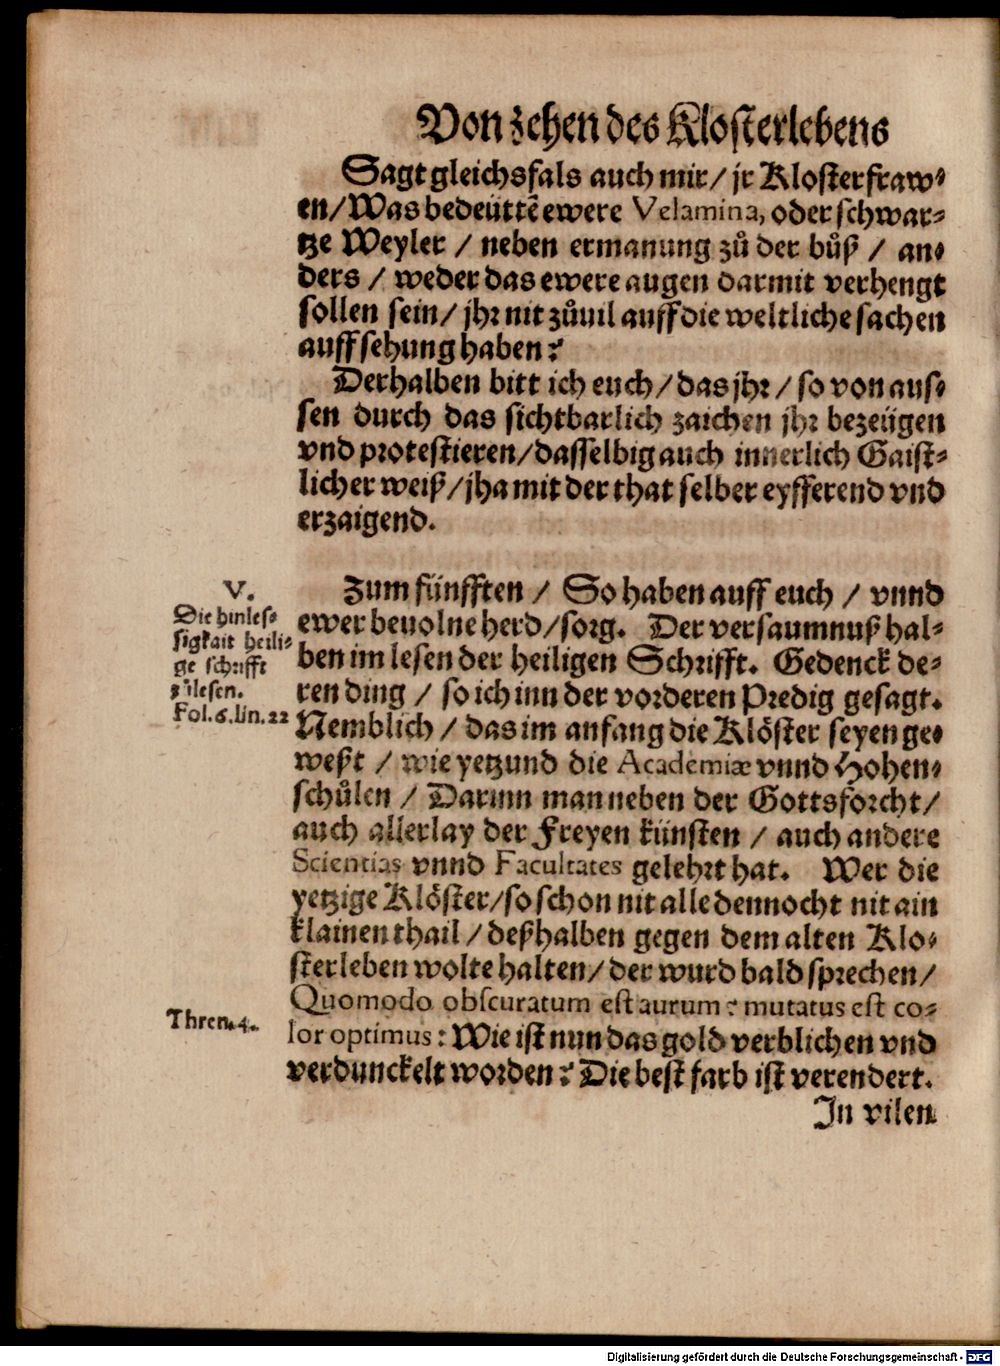 Von zehen des Klosterlebens
Sagt gleichsfals auch mir/ jr Klosterfraw⸗
en/ Was bedeüttē ewere Velamina, oder schwar⸗
tze Weyler / neben ermanung zů der bůß / an⸗
ders / weder das ewere augen darmit verhengt
sollen sein/ jhr nit zůuil auff die weltliche sachen
auffsehung haben?
Derhalben bitt ich euch/ das jhr / so von aus⸗
sen durch das sichtbarlich zaichen jhr bezeügen
vnd protestieren/ dasselbig auch innerlich Gaist⸗
licher weiß/ jha mit der that selber eyfferend vnd
erzaigend.
V.
Die hinles⸗
sigkait heili⸗
ge schrifft
zůlesen.
Fol. 6. lin. 22
Zum fünfften / So haben auff euch / vnnd
ewer beuolne herd/ sorg. Der versaumnuß hal⸗
ben im lesen der heiligen Schrifft. Gedenck de⸗
ren ding / so ich inn der vorderen Predig gesagt.
Nemblich / das im anfang die Klöster seyen ge⸗
weßt / wie yetzund die Academiæ vnnd Hohen⸗
schůlen / Darinn man neben der Gottsforcht/
auch allerlay der Freyen künsten / auch andere
Scientias vnnd Facultates gelehrt hat. Wer die
yetzige Klöster/ so schon nit alle dennocht nit ain
klainen thail / deßhalben gegen dem alten Klo⸗
sterleben wolte halten/ der wurd bald sprechen/
Thren. 4.
Quomodo obscuratum est aurum? mutatus est co⸗
lor optimus: Wie ist nun das gold verblichen vnd
verdunckelt worden? Die best farb ist verendert.
In vilen
Digitalisierung gefördert durch die Deutsche Forschungsgemeinschaft - DFG